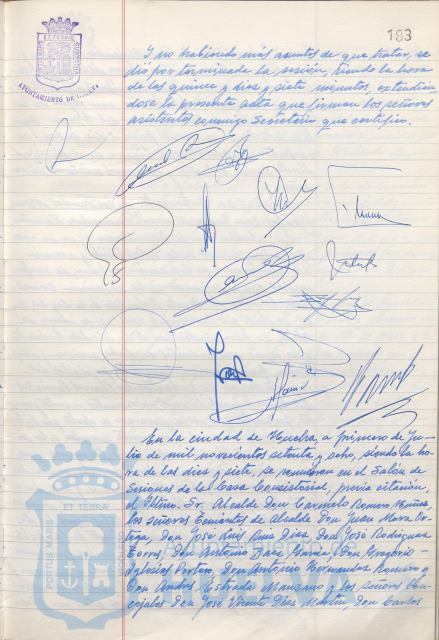 183
AYUNTAMIENTO DE HUELVA
Y no habiendo más asuntos de que tratar, se
dió por terminada la sesión, siendo la hora
de las quince y diez y siete minutos, extendién
dose la presente acta que firman los señores
asistentes conmigo Secretario que certifico.
En la ciudad de Huelva, a primero de Ju-
lio de mil novecientos setenta y ocho, siendo la ho-
ra de las diez y siete, se reunieron en el Salón de
Sesiones de la Casa Consistorial, previa citación,
el Iltmo. Sr. Alcalde Don Carmelo Romero Núñez,
los señores Tenientes de Alcalde Don Juan Mora Or-
tega, Don José Luis Ruiz Díaz, Don José Rodríguez
Torres, Don Antonio Báez, Don Gregorio
Iglesias, Don Antonio Hernández Romero y
Don Andrés Estrada Manzano y los señores Con-
cejales Don José Vicente Díaz Martín, Don Carlos
ET TERRAE
PORTUS MARIS